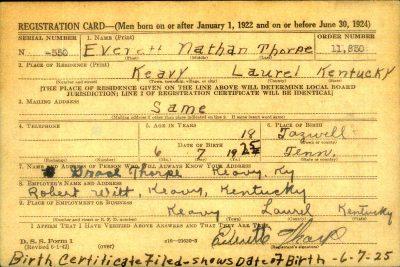 REGISTRATION CARD—(Men born on or after January 1, 1922 and on or before June 30, 1924)
SERIAL NUMBER 1. NAME (Print) ORDER NUMBER
N -550 Everett Nathan Thorpe 11,850
2. PLACE OF RESIDENCE (Print)
Keavy Laurel Kentucky
(Number and street) (Town, township, village, or city) (County) (State)
[THE PLACE OF RESIDENCE GIVEN ON THE LINE ABOVE WILL DETERMINE LOCAL BOARD
JURISDICTION; LINE 2 OF REGISTRATION CERTIFICATE WILL BE IDENTICAL]
3. MAILING ADDRESS
Same
[Mailing address if other than place indicated on line 2. If same insert word same]
4. TELEPHONE 5. AGE IN YEARS 6. PLACE OF BIRTH
18 Tazwell
DATE OF BIRTH (Town or county)
6 7 Tenn.
(State or country)
7. NAME AND ADDRESS OF PERSON WHO WILL ALWAYS KNOW YOUR ADDRESS
Thorpe Keavy, Ky
8. EMPLOYER'S NAME AND ADDRESS
Robert Witt, Keavy, Kentucky
9. PLACE OF EMPLOYMENT OR BUSINESS
Keavy Laurel Kentucky
(Number and street or R. F. D. number) (Town) (County) (State)
I AFFIRM THAT I HAVE VERIFIED ABOVE ANSWERS AND THAT THEY ARE TRUE.
D. S. S. Form 1
(Registrant's signature)
Birth Certificate Filed-shows Date of Birth - 6-7-25